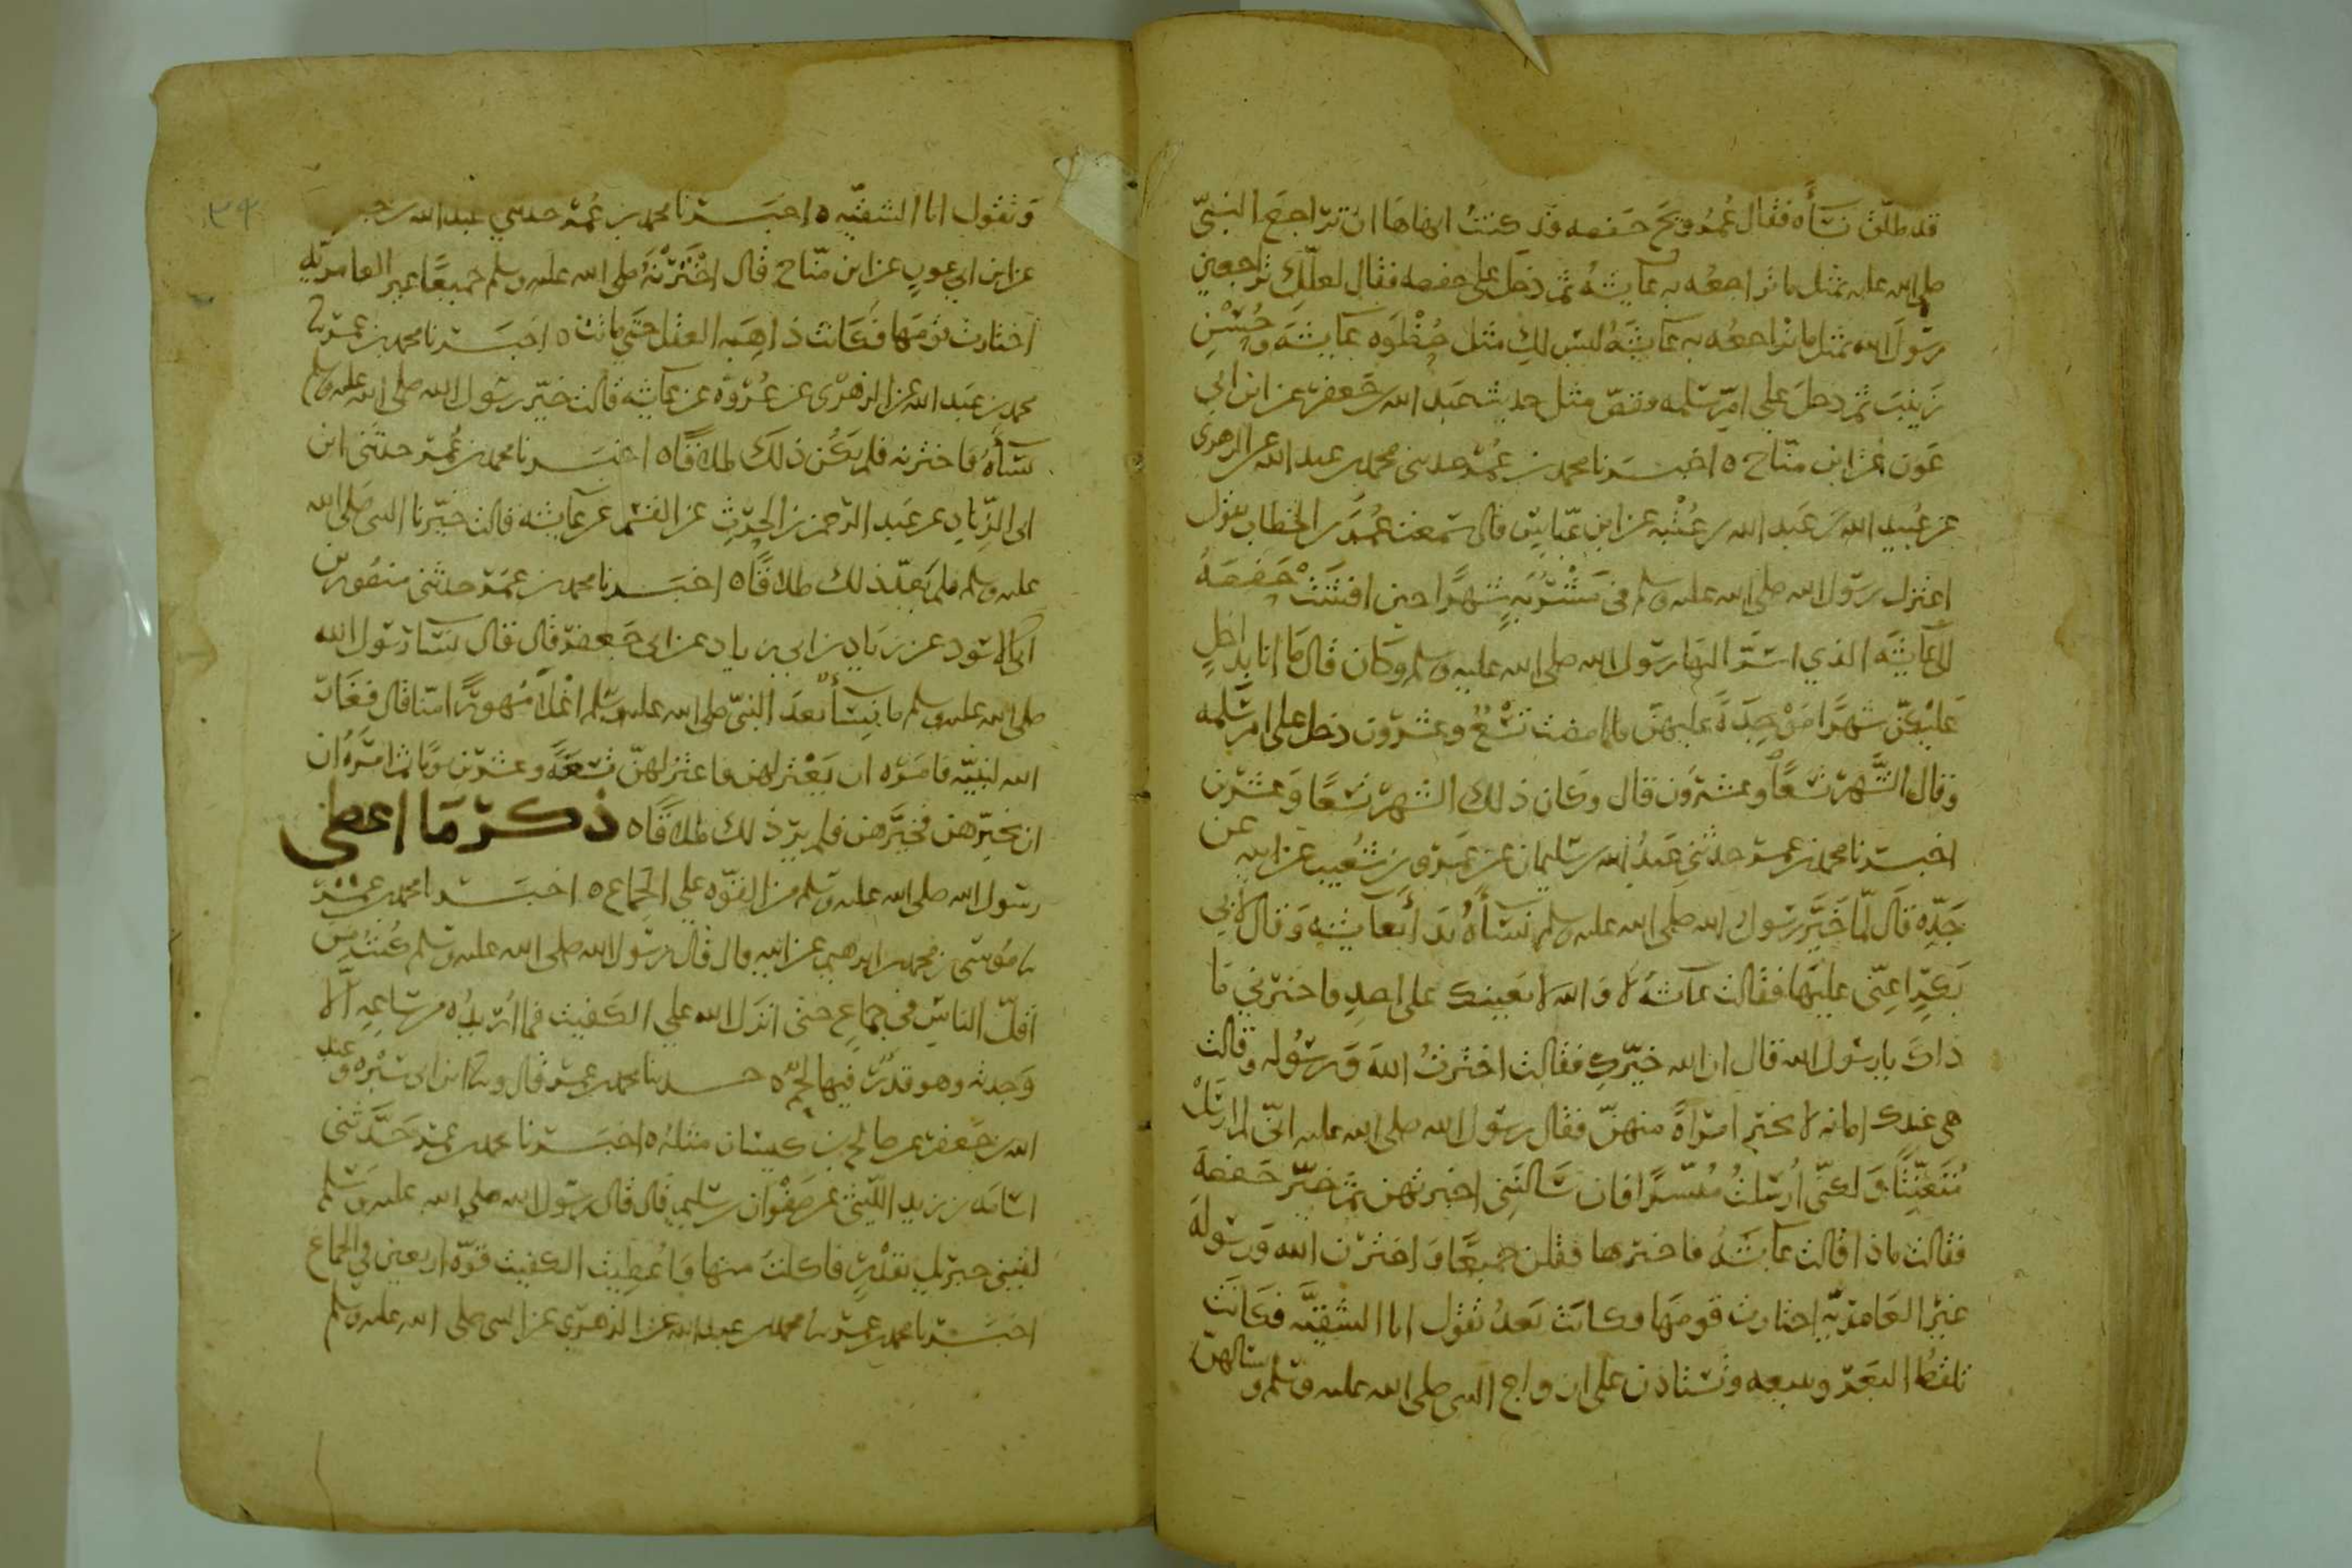 قد طلّق نسآه فقال عُمر ويح حفصه قد كنت انهاها ان تراجع النبيّ
صلى الله عليه بمثل ما تراجعُه به عايشهُ ثم دخل على حفصه فقال لعلّكِ تراجعين
رسول الله بمثل ما تراجعُه به عايشهُ ليس لكِ مثل حُظْوه عايشه وحُسْنِ
زينب ثم دخل على امّ سلمه فقصّ مثل حديث عبد الله بن جعفر عن ابن ابي
عون عن ابن منّاح ٥ اخبرنا محمد بن عمر حدثني محمد بن عبد الله عن الزهرى
عن عُبيد الله بن عبد الله بن عُتْبه عن ابن عبّاس قال سمعت عُمر بن الخطاب يقول
اعتزل رسول الله صلى الله عليه وسلم في مَشْرُبَهٍ شهرًا حين افشَتْ حفصهُ
الى عايشه الذي اسَرّ اليها رسول الله صلى الله عليه وسلم وكان قال ما انا بداخلٍ
عليكنّ شهرًا مَوْجِدَةً عليهنّ فلما مضت تِسْعٌ وعشرون دخل على امّ سلمه
وقال الشّهر تسعًا وعشرون قال وكان ذلك الشهر تسعًا وعشرين
اخبرنا محمد بن عمر حدثني عبدُ الله بن سليمان عن عمرو بن شُعيب عن ابيه عن
جدّه قال لمّا خَيَّر رسول الله صلى الله عليه وسلم نسآهُ بدَا بعايشه وقال لابي
بكرٍ اعِنّى عليها فقالت عايشهُ لا والله لا يعينك علي احدٍ فاخبرني ما
ذاك يا رسول الله قال ان الله خيّركِ فقالت اخترتُ الله ورسُوله وقالت
هى عندك امانه لا تخبر امرأةً منهنّ فقال رسول الله صلى الله عليه انّى لم اُرسَلْ
مُتَعنِّتًا ولكنّى اُرسلتُ مُيسّرًا فان سَالنَنِى اخبرتهن ثم خيّر حفصه
فقالت ماذا قالت عايشهُ فاخبرها فقلن جميعًا واخترن الله ورسوله
غير العامريّهِ اختارت قومَها فكانت بعدُ تقول انا الشقيَّه فكانت
تلقُط البعر وتبيعه وتستاذن على ازواج النبى صلى الله عليه وسلم وتسالهنّ
وتقول انا الشقيّه ٥ اخبرنا محمد بن عُمر حدثني عبد الله بن جعفر
عن ابن ابي عون عن ابن منّاح قال اخْتَرْنَهُ صلى الله عليه وسلم جميعًا غير العامريّه
اختارت قومَها فكانت ذاهِبه العقل حتى ماتت ٥ اخبرنا محمد بن عمر نا
محمد بن عبد الله عن الزهرى عن عُرْوه عن عايشه قالت خيّر رسول الله صلى الله عليه وسلم
نسآهُ فاخترنه فلم يكُن ذلك طلاقًا ٥ اخبرنا محمد بن عُمر حدثنى ابن
ابى الزِّنادِ عن عبد الرحمن بن الحرثِ عن القسم عن عايشه قالت خيّرنا النبى صلى الله
عليه وسلم فلم يَعُدّ ذلك طلاقًا ٥ اخبرنا محمد بن عُمر حدثنى منصور بن
ابى الاسود عن زياد بن ابي زياد عن ابى جعفر قال قال نسآ رسول الله
صلى الله عليه وسلم ما نِسَآ بعدَ النبيّ صلى الله عليه وسلم اغْلَا مُهورًا منّا قال فغَارَ
الله لنبيّه فامره ان يَعْتزلهن فاعتزلهنّ تسعَهً وعشرين يومًا ثم امَرَهُ ان
ان يخيّرهن فخيَّرهن فلم يرَ ذلك طلاقًا ٥ ذكر ما اعطى
رسول الله صلى الله عليه وسلم من القوّه على الجماع ٥ اخبرنا محمد بن عمر
نا مُوسى بن محمد بن ابرهيم عن ابيه قال قال رسول الله صلى الله عليه وسلم كنتُ من
اقلّ الناس في جماعٍ حتى انزل الله علي الكفيت فما اُريدُه من ساعهٍ الّا
وجدته وهو قدرٌ فيها لحم ٥ حدثنا محمد بن عمر قال ونا ابن ابى سَبْره وعبد
الله بن جعفر عن صالح بن كيسان مثلهُ ٥ اخبرنا محمد بن عمر حدَّثنى
اسامه بن زيد الليثى عن صَفْوان بن سليم قال قال رسول الله صلى الله عليه وسلم
لقينى جبريل بقدْرٍ فاكلتُ منها واُعطِيتُ الكفيت قوّه اربعين في الجماع
اخبرنا محمد بن عمر نا محمد بن عبد الله عن الزهرى عن النبى صلى الله عليه وسلم